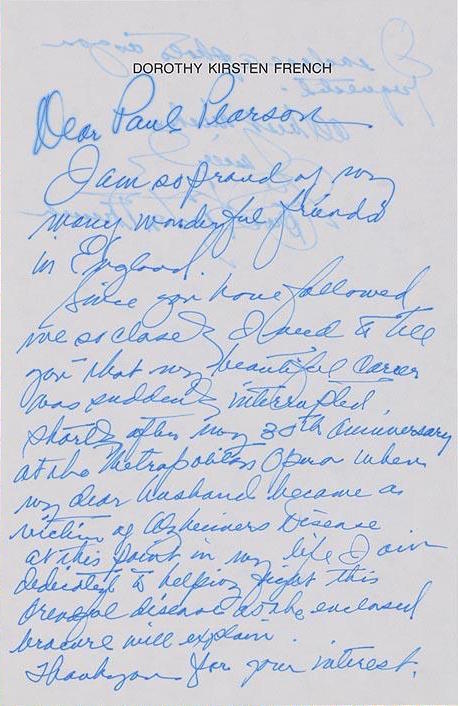 DOROTHY KIRSTEN FRENCH
Dear Paul Pearson
I am so proud of my
many wonderful friends
in England.
Since you have followed
me so closely I need to tell
you that my beautiful career
was suddenly interrupted,
shortly after my 30th anniversary
at the Metropolitan Opera when
my dear husband became a
victim of Alzheimers Disease
at this point in my life I am
dedicated to helping fight this
dreadful disease as the enclosed
bracure will explain.
Thank you for your interest.